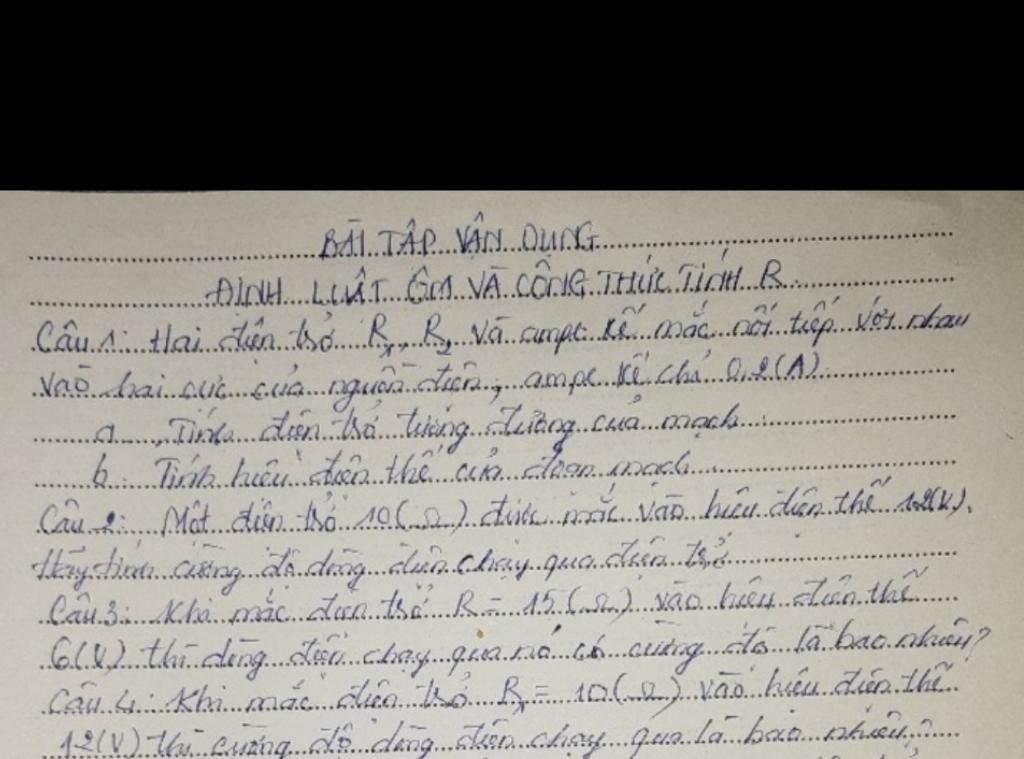 BÀI TẬP VẬN DỤNG
ĐỊNH LUẬT ÔM VÀ CÔNG THỨC TÍNH R.
Câu 1: Hai điện trở R₁, R₂ và ampe kế mắc nối tiếp với nhau
vào hai cực của nguồn điện, ampe kế chỉ 0,2(A).
a. Tính điện trở tương đương của mạch.
b. Tính hiệu điện thế của đoạn mạch.
Câu 2: Một điện trở 10(Ω) được mắc vào hiệu điện thế 12(V).
Hãy tính cường độ dòng điện chạy qua điện trở
Câu 3: Khi mắc điện trở R = 15(Ω) vào hiệu điện thế
6(V) thì dòng điện chạy qua nó có cường độ là bao nhiêu?
Câu 4: Khi mắc điện trở R₁ = 10(Ω) vào hiệu điện thế
12(V) thì cường độ dòng điện chạy qua là bao nhiêu?